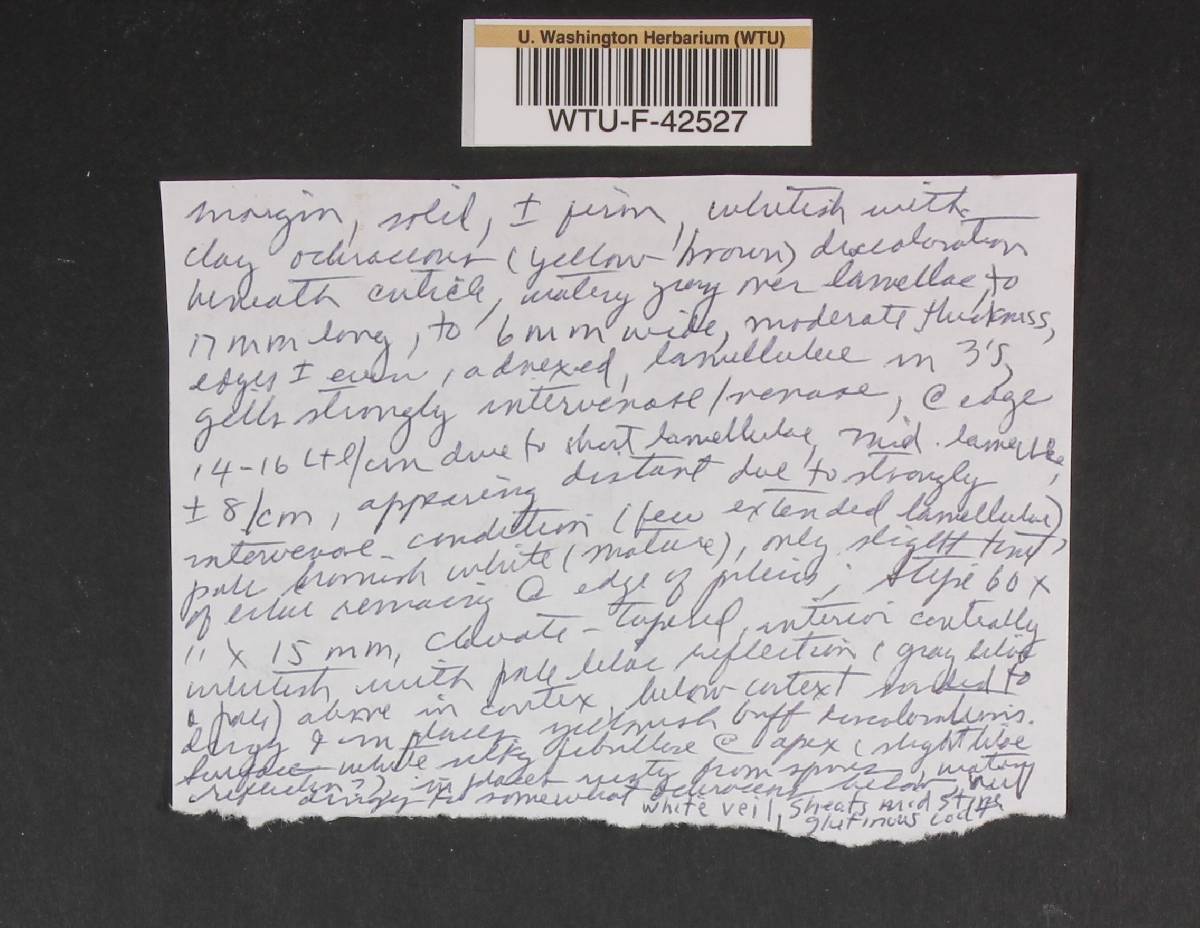 U. Washington Herbarium (WTU)
WTU-F-42527
margin, solid, ± firm, whitish with
clay ochraceous (yellow brown) discoloration
beneath cuticle, watery gray over lamellae, to
17 mm long, to 6 mm wide, moderate thickness,
edges ± even, adnexed, lamellulae in 3's,
gills strongly intervenose/venose, @ edge
14-16 L+l/cm due to short lamellulae, mid. lamellae,
± 8/cm, appearing distant due to strongly
intervenose condition (few extended lamellulae)
pale brownish white (mature), only slight tint
of lilac remaing @ edge of pileus; stipe 60 x
11 x 15 mm, clavate-tapered, interior centrally
whitish with pale lilac reflection (gray lilac
& pale) above in cortex, below cortext sordid to
dingy & in places yellowish buff discolorations.
Surface white silky fibrillose @ apex (slight lilac
reflection?), in places rusty from spores, watery
dingy to somewhat ochraceous below,
white veil, sheats mid stipe
glutinous coat